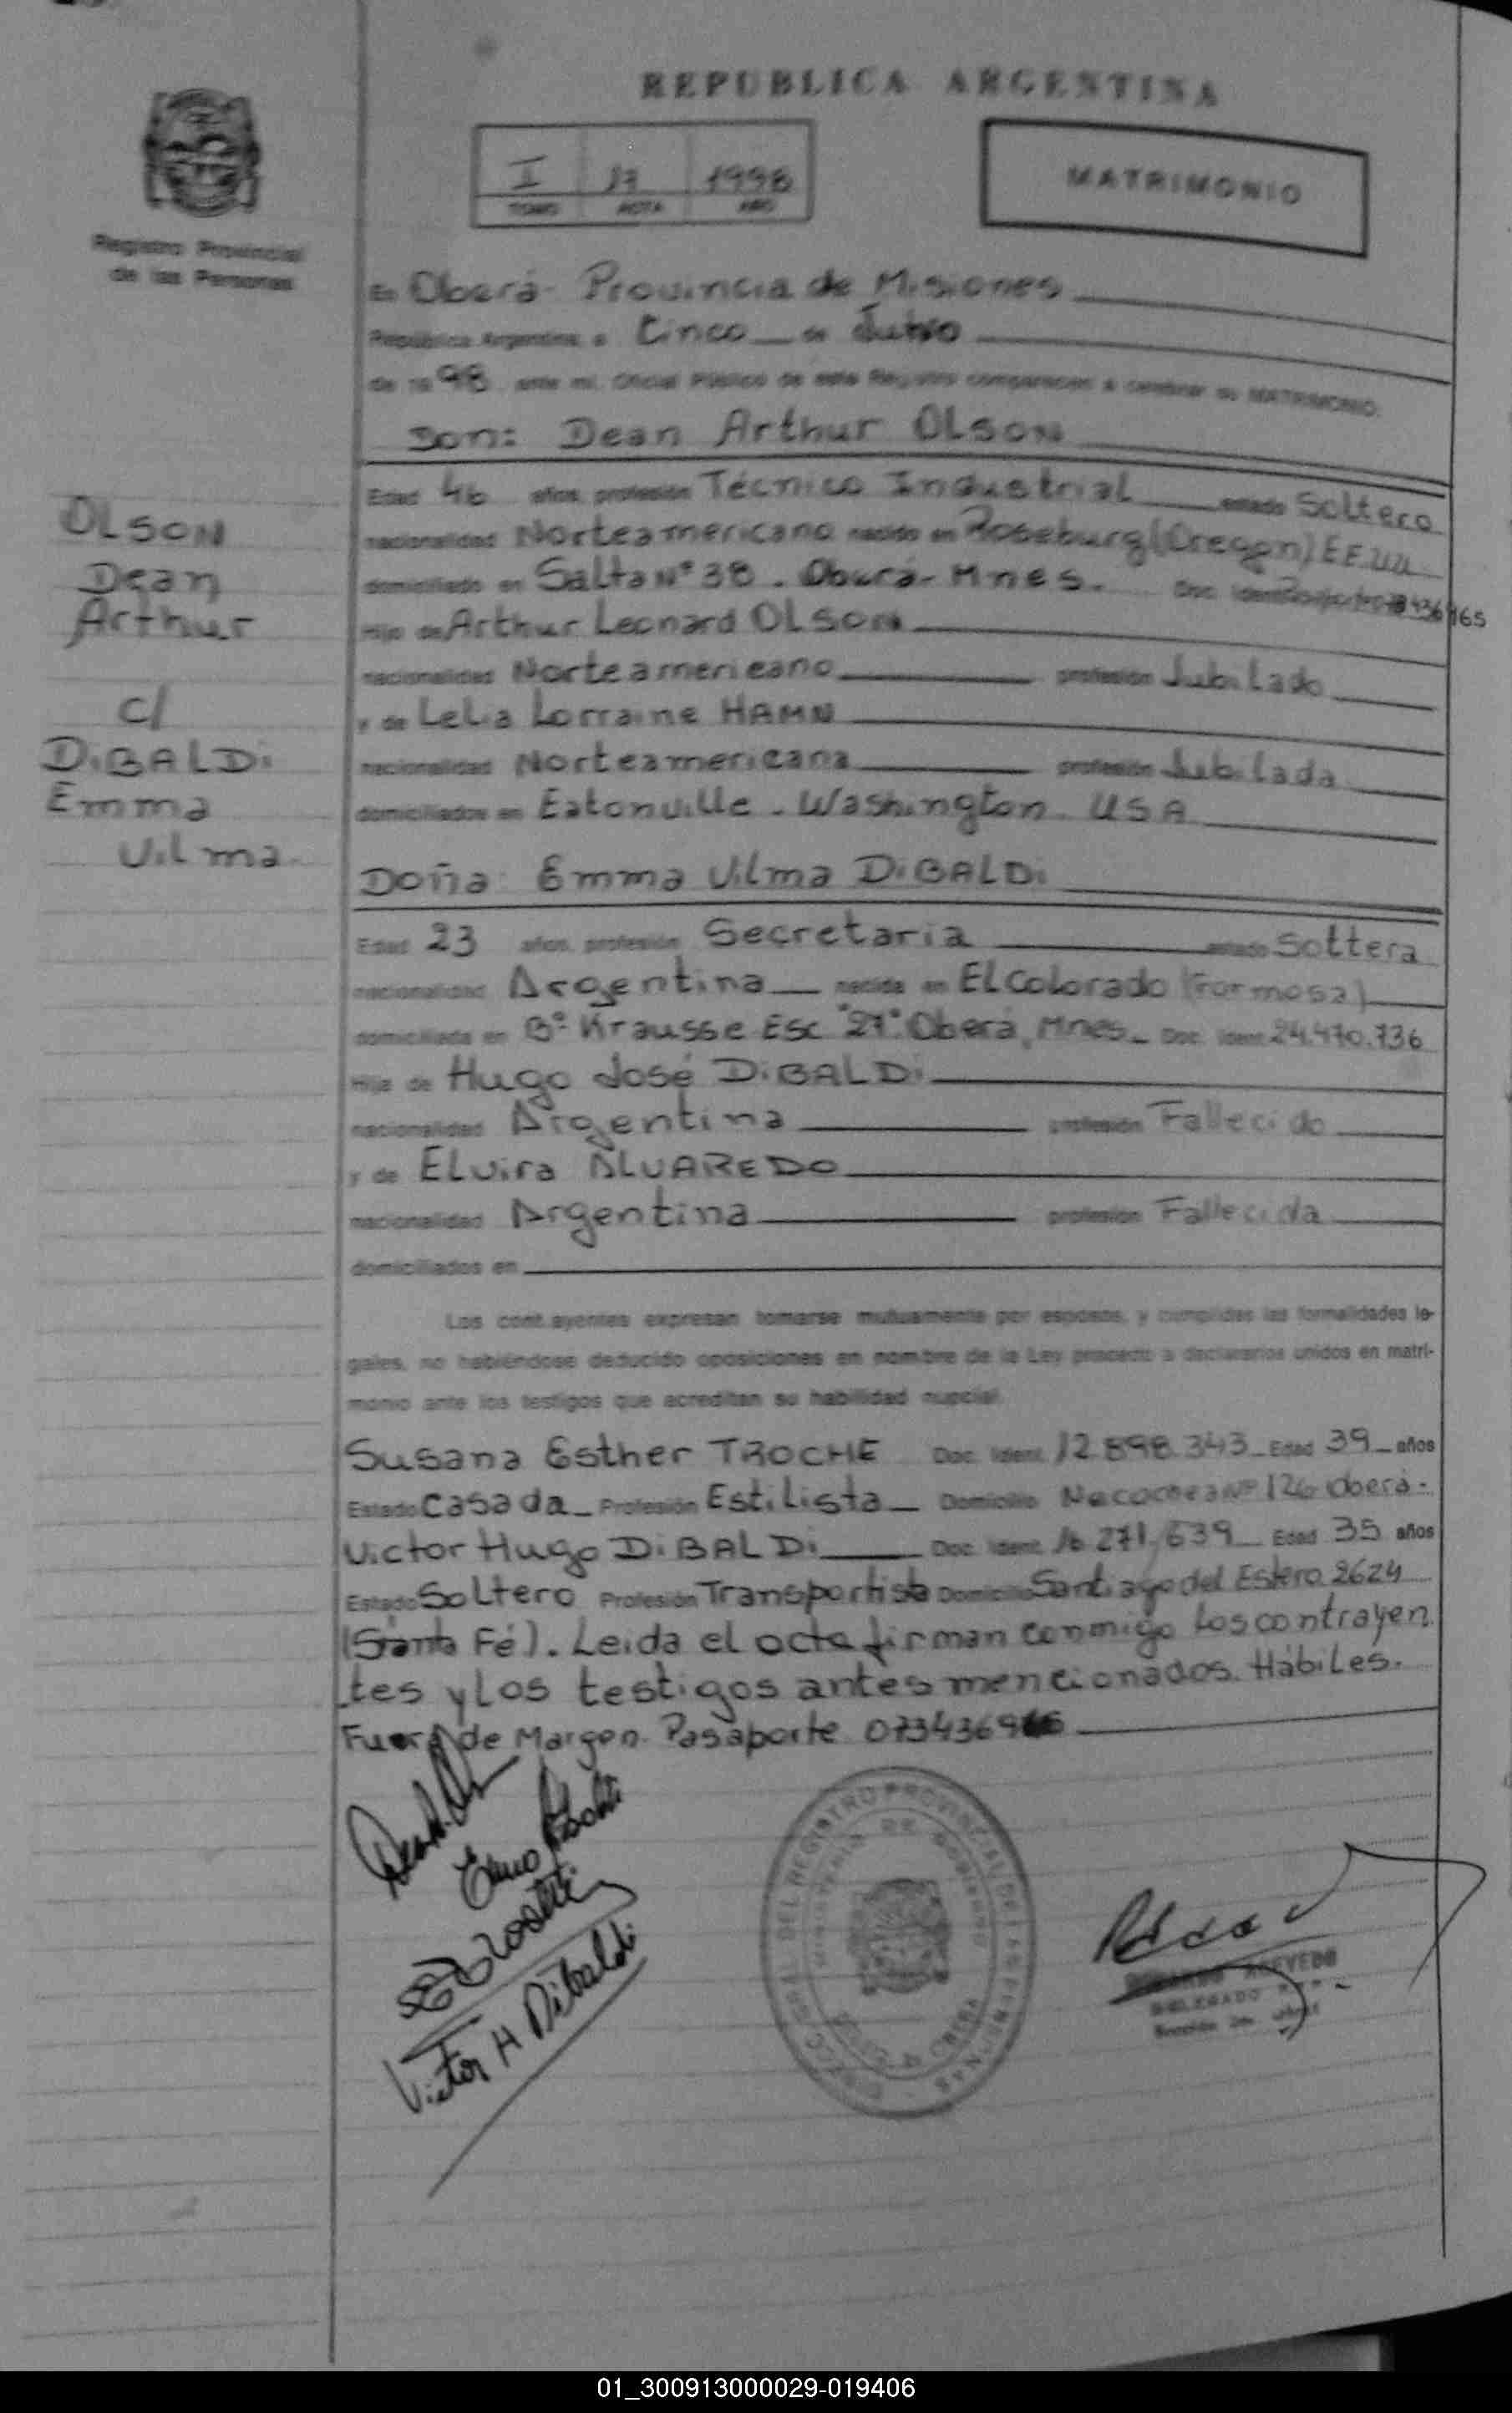 REPUBLICA ARGENTINA
I 17 1998
TOMO ACTA AÑO
MATRIMONIO
Registro Provincial
de las Personas
En Oberá - Provincia de Misiones
República Argentina, a Cinco de
de 19 98 ante mí, Oficial Público de este Registro comparecen a celebrar su MATRIMONIO:
Don: Dean Arthur OLSON
Edad 46 años, profesión Técnico Industrial estado Soltero
nacionalidad Norteamericano nacido en Roseburg (Oregon) EE.UU
domiciliado en Salta Nº 38 - Oberá - Mnes. Doc. Ident.
Hijo de Arthur Leonard OLSON
nacionalidad Norteamericano profesión Jubilado
y de Lelia Lorraine HAMN
nacionalidad Norteamericana profesión Jubilada
domiciliados en Eatonville - Washington - USA
Doña: Emma Vilma DiBALDi
Edad 23 años, profesión Secretaria estado Soltera
nacionalidad Argentina nacida en El Colorado (Formosa)
domiciliada en Bº Krausse Esc "27" Oberá, Mnes. Doc. Ident. 24.470.736
Hija de Hugo José DiBALDi
nacionalidad Argentina profesión Fallecido
y de Elvira ALVAREDO
nacionalidad Argentina profesión Fallecida
domiciliados en
Los contrayentes expresan tomarse mutuamente por esposos, y cumplidas las formalidades le-
gales, no habiéndose deducido oposiciones en nombre de la Ley procedo a declararlos unidos en matri-
monio ante los testigos que acreditan su habilidad nupcial.
Susana Esther TROCHE Doc. Ident. 12.898.343 Edad 39 años
Estado Casada Profesión Estilista Domicilio Necochea Nº 126 Oberá -
Victor Hugo DiBALDi Doc. Ident. 16.271.639 Edad 35 años
Estado Soltero Profesión Transportista Domicilio Santiago del Estero 2624
(Santa Fé). Leida el acta firman conmigo los contrayen
tes y los testigos antes mencionados. Hábiles.
Fuera de Margen. Pasaporte
OLSON
Dean
Arthur
c/
DiBALDi
Emma
Vilma
Victor H Dibaldi
ACEVEDO
DELEGADO
01_300913000029-019406